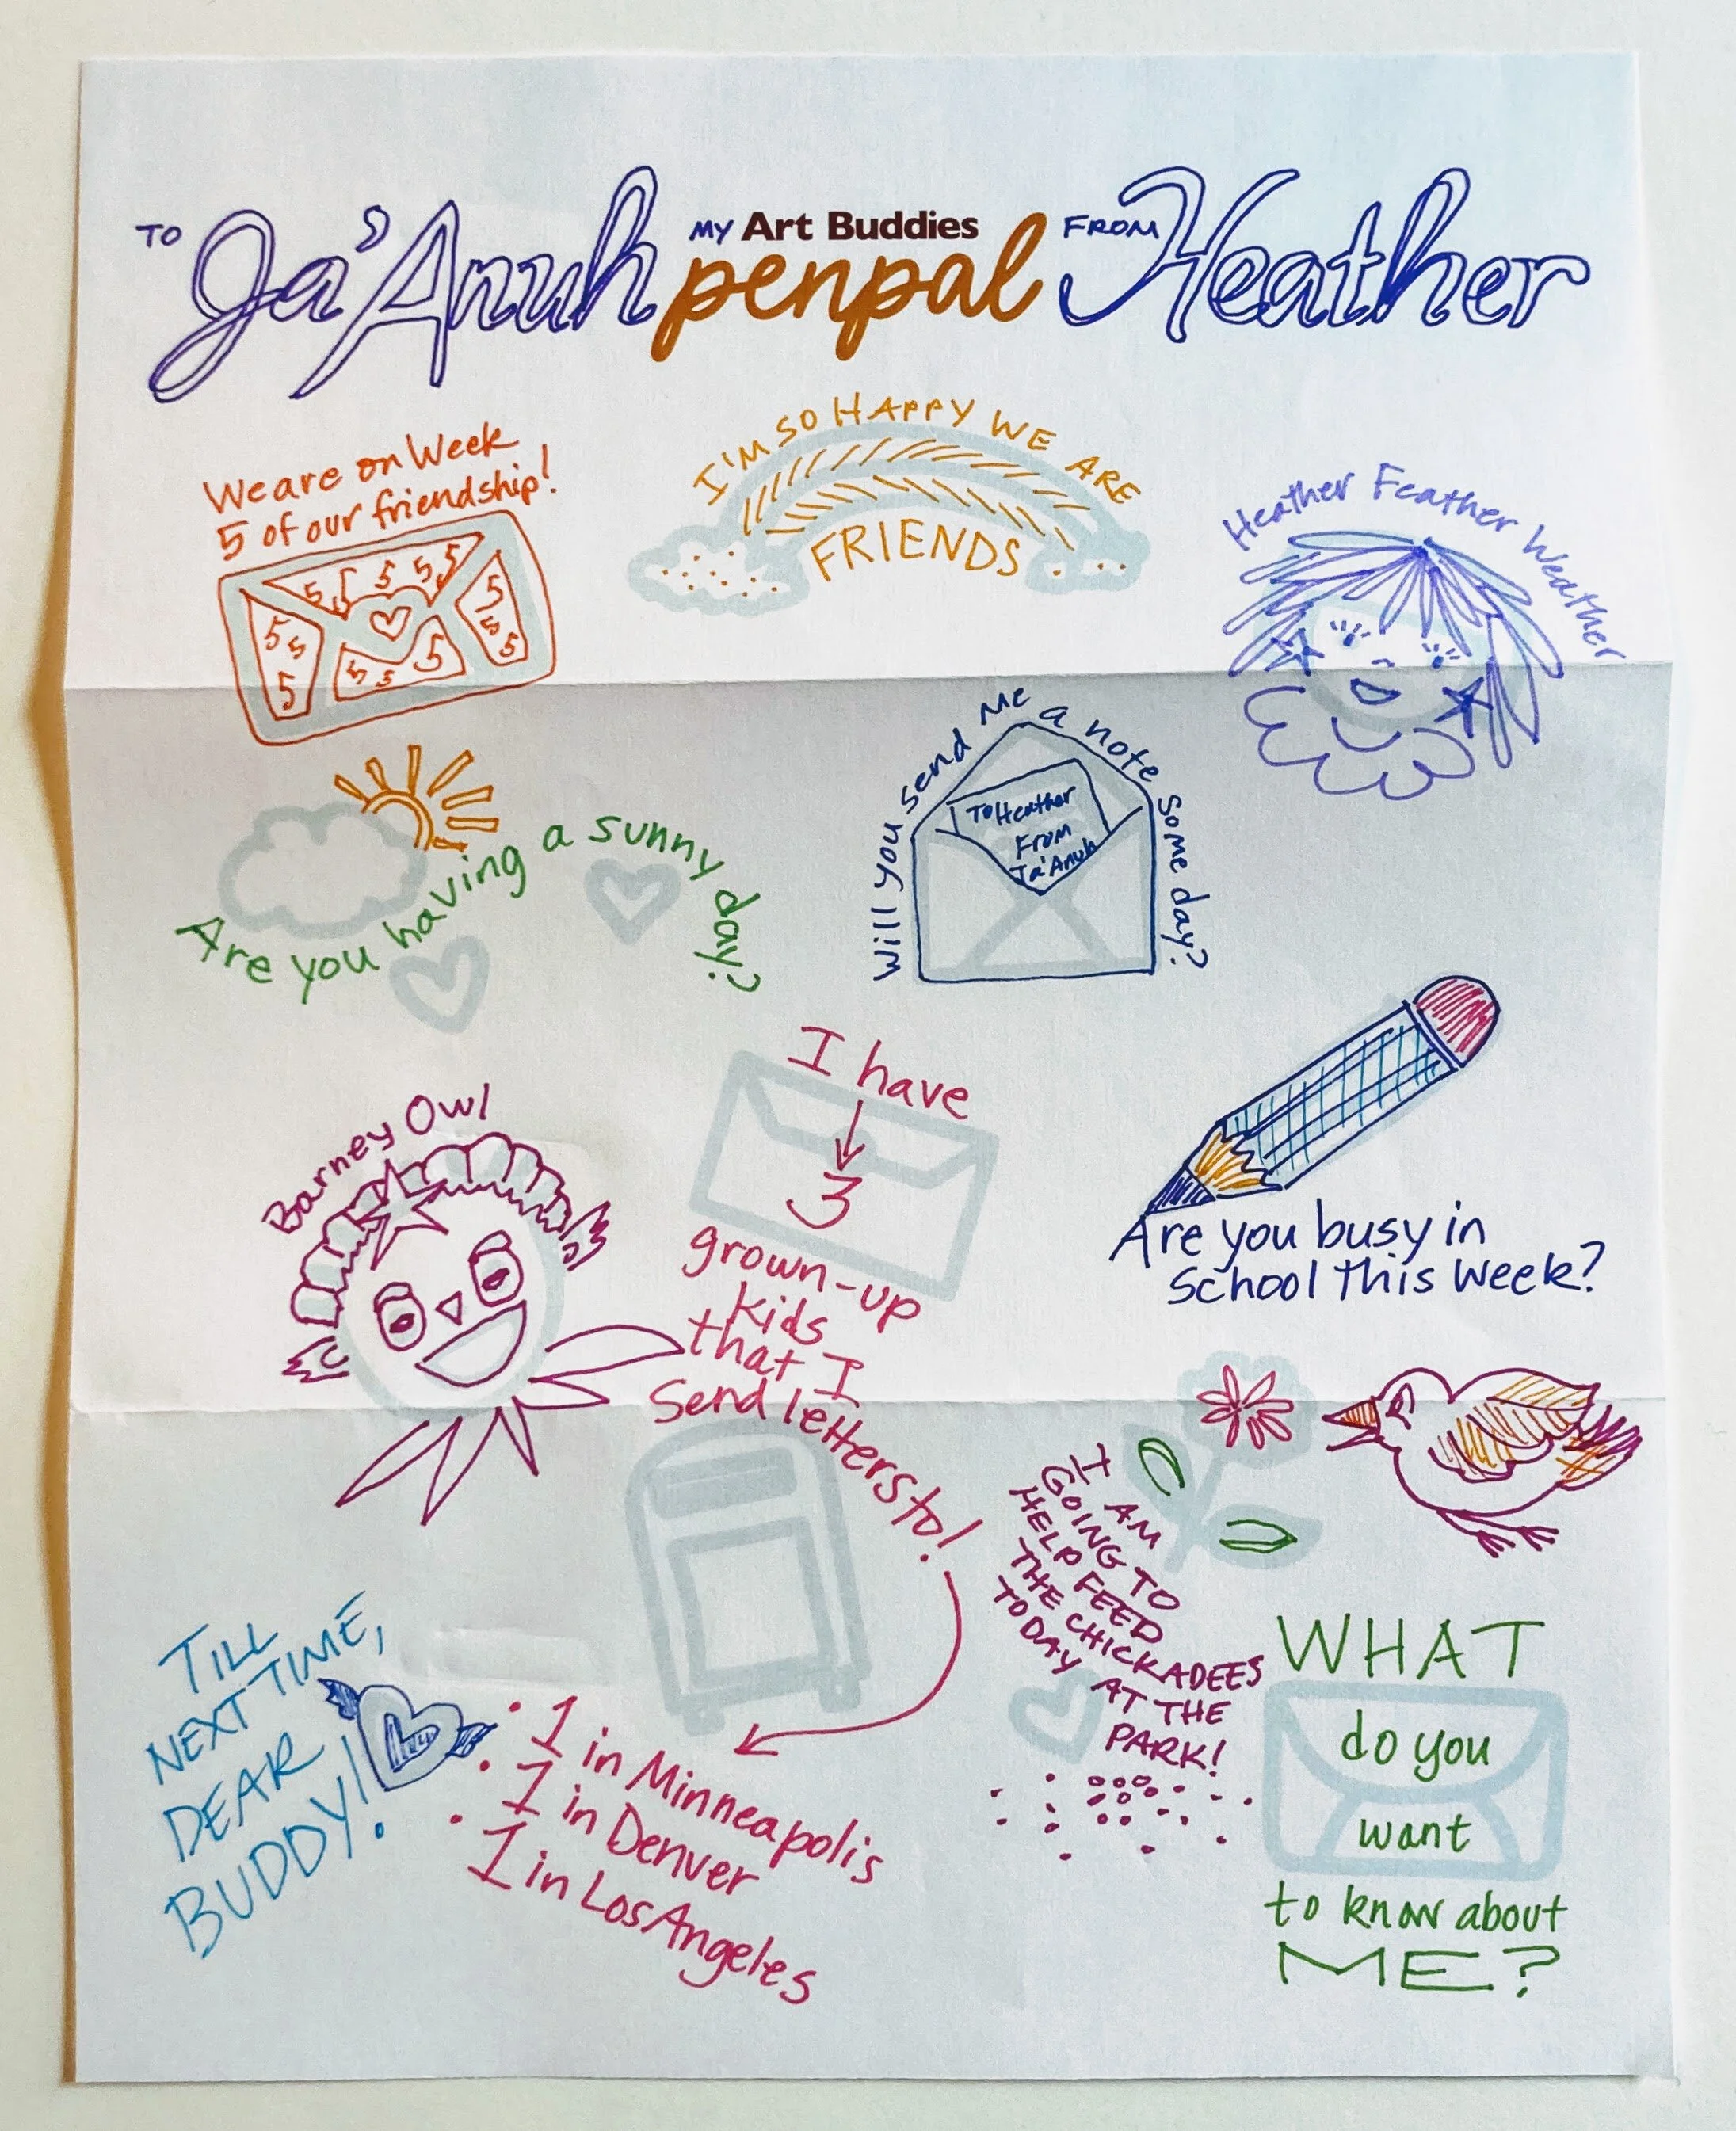 TO Ja'Anuh MY Art Buddies penpal FROM Heather
We are on Week
5 of our friendship!
5 5 5 5 5
5
5 5 5
5 5 5
5 5 5
I'M SO HAPPY WE ARE
FRIENDS
Heather Feather Weather
Are you having a sunny day?
Will you send Me a note some day?
To Heather
From
Ja'Anuh
Barney Owl
I have
3
grown-up
kids
that I
Send letters to!
• 1 in Minneapolis
• 1 in Denver
• 1 in Los Angeles
Are you busy in
School this Week?
I AM
GOING TO
HELP FEED
THE CHICKADEES
TODAY AT THE
PARK!
TILL
NEXT TIME,
DEAR
BUDDY!
WHAT
do you
want
to know about
ME?